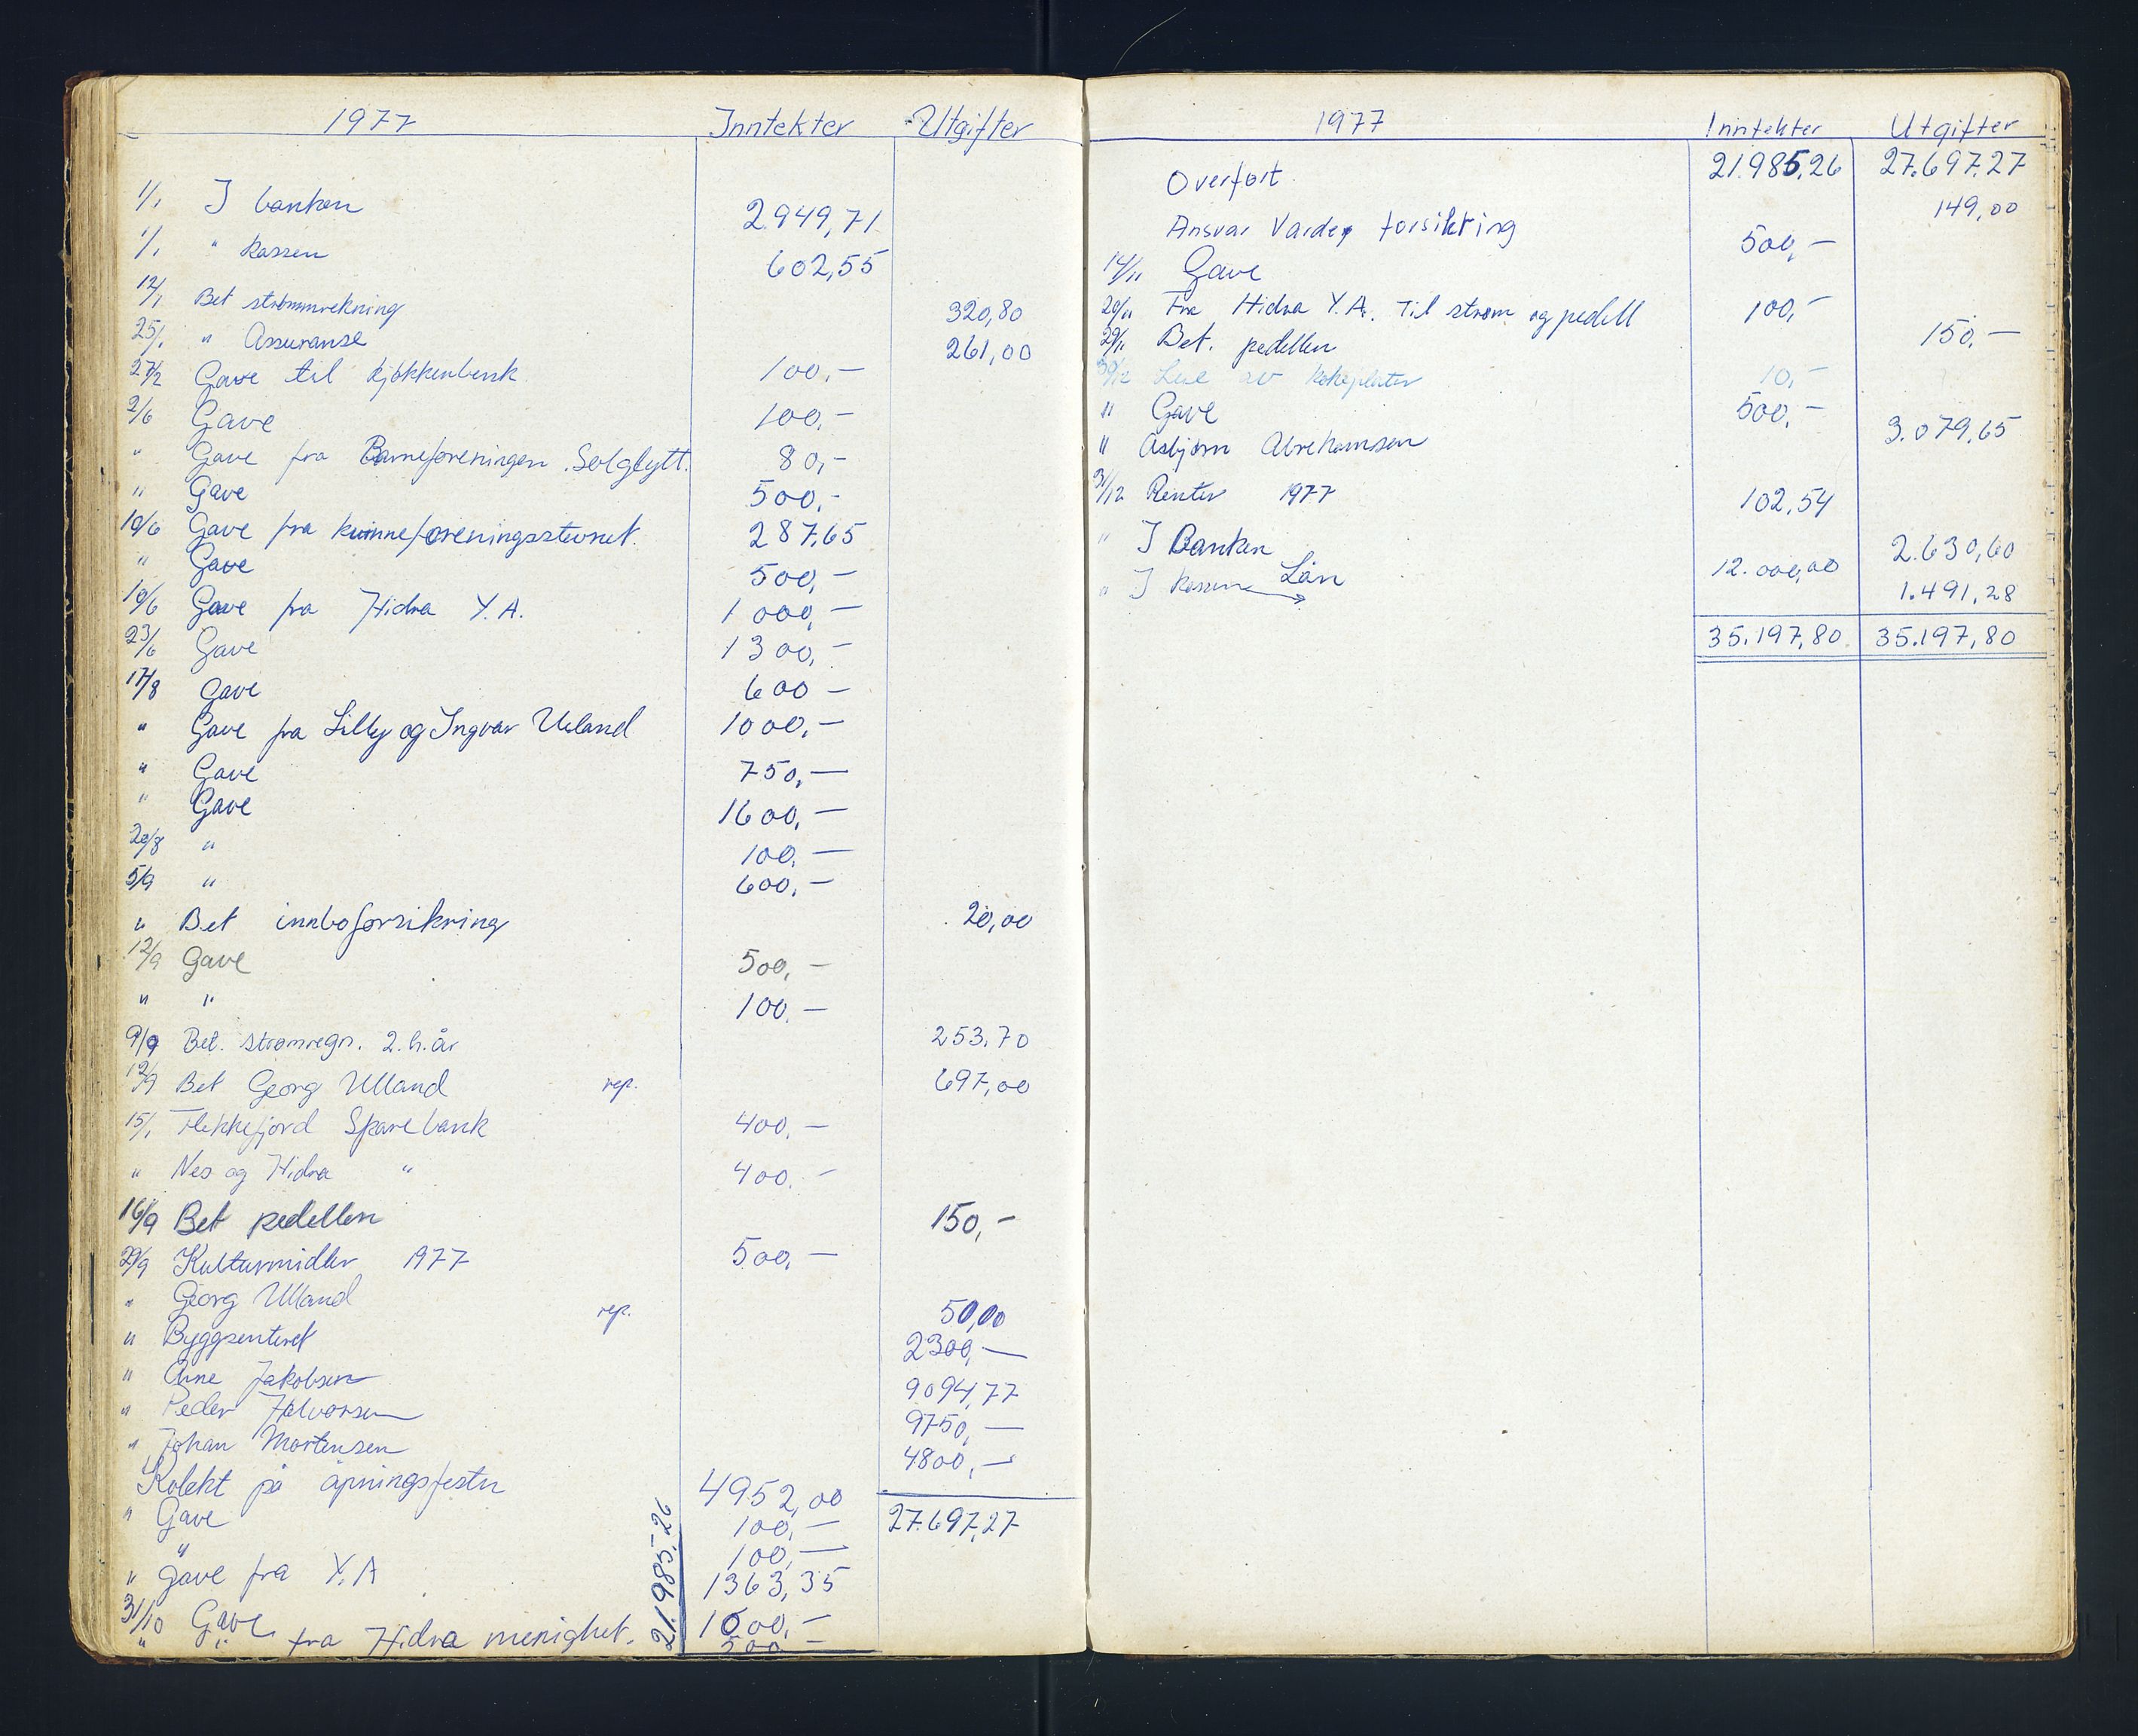 1977 Inntekter Utgifter
1/1 I banken 2949,71
1/1 " kassen 602,55
12/1 Bet strømmrekning 320,80
25/1 " Assuranse 261,00
27/2 Gave til kjøkkenbenk 100,-
2/6 Gave 100,-
" Gave fra Barneforeningen Solglytt. 80,-
" Gave 500,-
10/6 Gave fra kvinneforeningsstevnet. 287,65
" Gave 500,-
10/6 Gave fra Hidra Y.A. 1000,-
23/6 Gave 1300,-
17/8 Gave 600 -
" Gave fra Lilly og Ingvar Ueland 1000,-
" Gave 750,-
" Gave 1600,-
20/8 " 100,-
5/9 " 600,-
" Bet innboforsikring 20,00
12/9 Gave 500,-
" " 100,-
9/9 Bet. strømregn. 2. h.år 253.70
12/9 Bet Georg Ulland rep. 697,00
15/1 Flekkefjord Sparebank 400,-
" Nes og Hidra " 400.-
16/9 Bet pedellen 150,-
29/9 Kulturmidler 1977 500,-
" Georg Ulland rep. 50,00
" Byggsenteret 2300,-
" Arne Jakobsen 9094,77
" Peder Halvorsen 9750,-
" Johan Mortensen 4800,-
Kolekt på åpningsfesten 4952,00
" Gave 100,- 27.697,27
" 100,-
" Gave fra Y.A 1363,35
31/10 Gave 1000,-
" " fra Hidra menighet. 500 -
21.985,26
1977 Inntekter Utgifter
Overført. 21.985,26 27.697,27
Ansvar Varde forsikring 149,00
14/11 Gave 500,-
20/11 Fra Hidra Y.A. til strøm og pedell 100,-
29/11 Bet. pedellen 150,-
30/12 Leie av kokeplater 10,-
" Gave 500,-
" Asbjørn Abrehamsen 3.079,65
31/12 Renter 1977 102,54
" I Banken 2.630,60
Lån 12.000,00
" I kassen 1.491,28
35.197,80 35.197,80